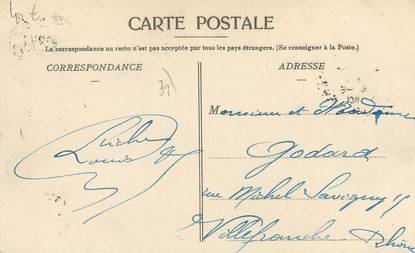 CARTE POSTALE
La correspondance au recto n'est pas acceptée par tous les pays étrangers. (Se renseigner à la Poste.)
CORRESPONDANCE
ADRESSE
Louis
Monsieur et Madame
Godard
rue Michel Savigny
Villefranche
Rhône